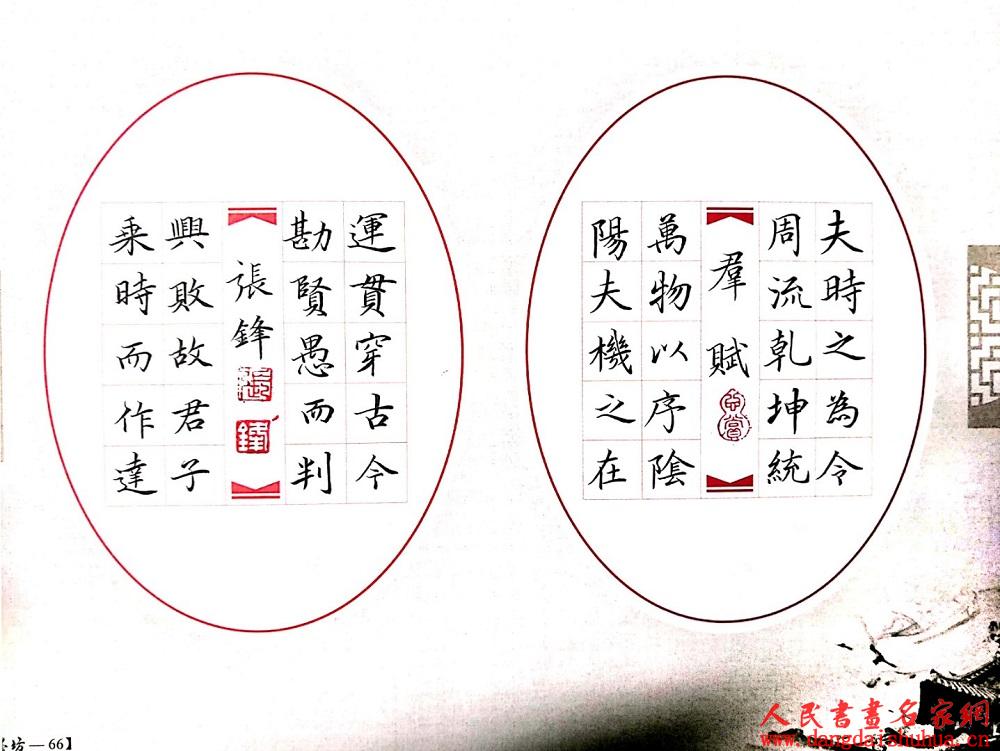 夫時之為令
周流乾坤統
羣賦
萬物以序陰
陽夫機之在
運貫穿古今
勘賢愚而判
張鋒
張
鋒
興敗故君子
乘時而作達
坊—66】
人民書畫名家網
www.dangdaishuhua.cn